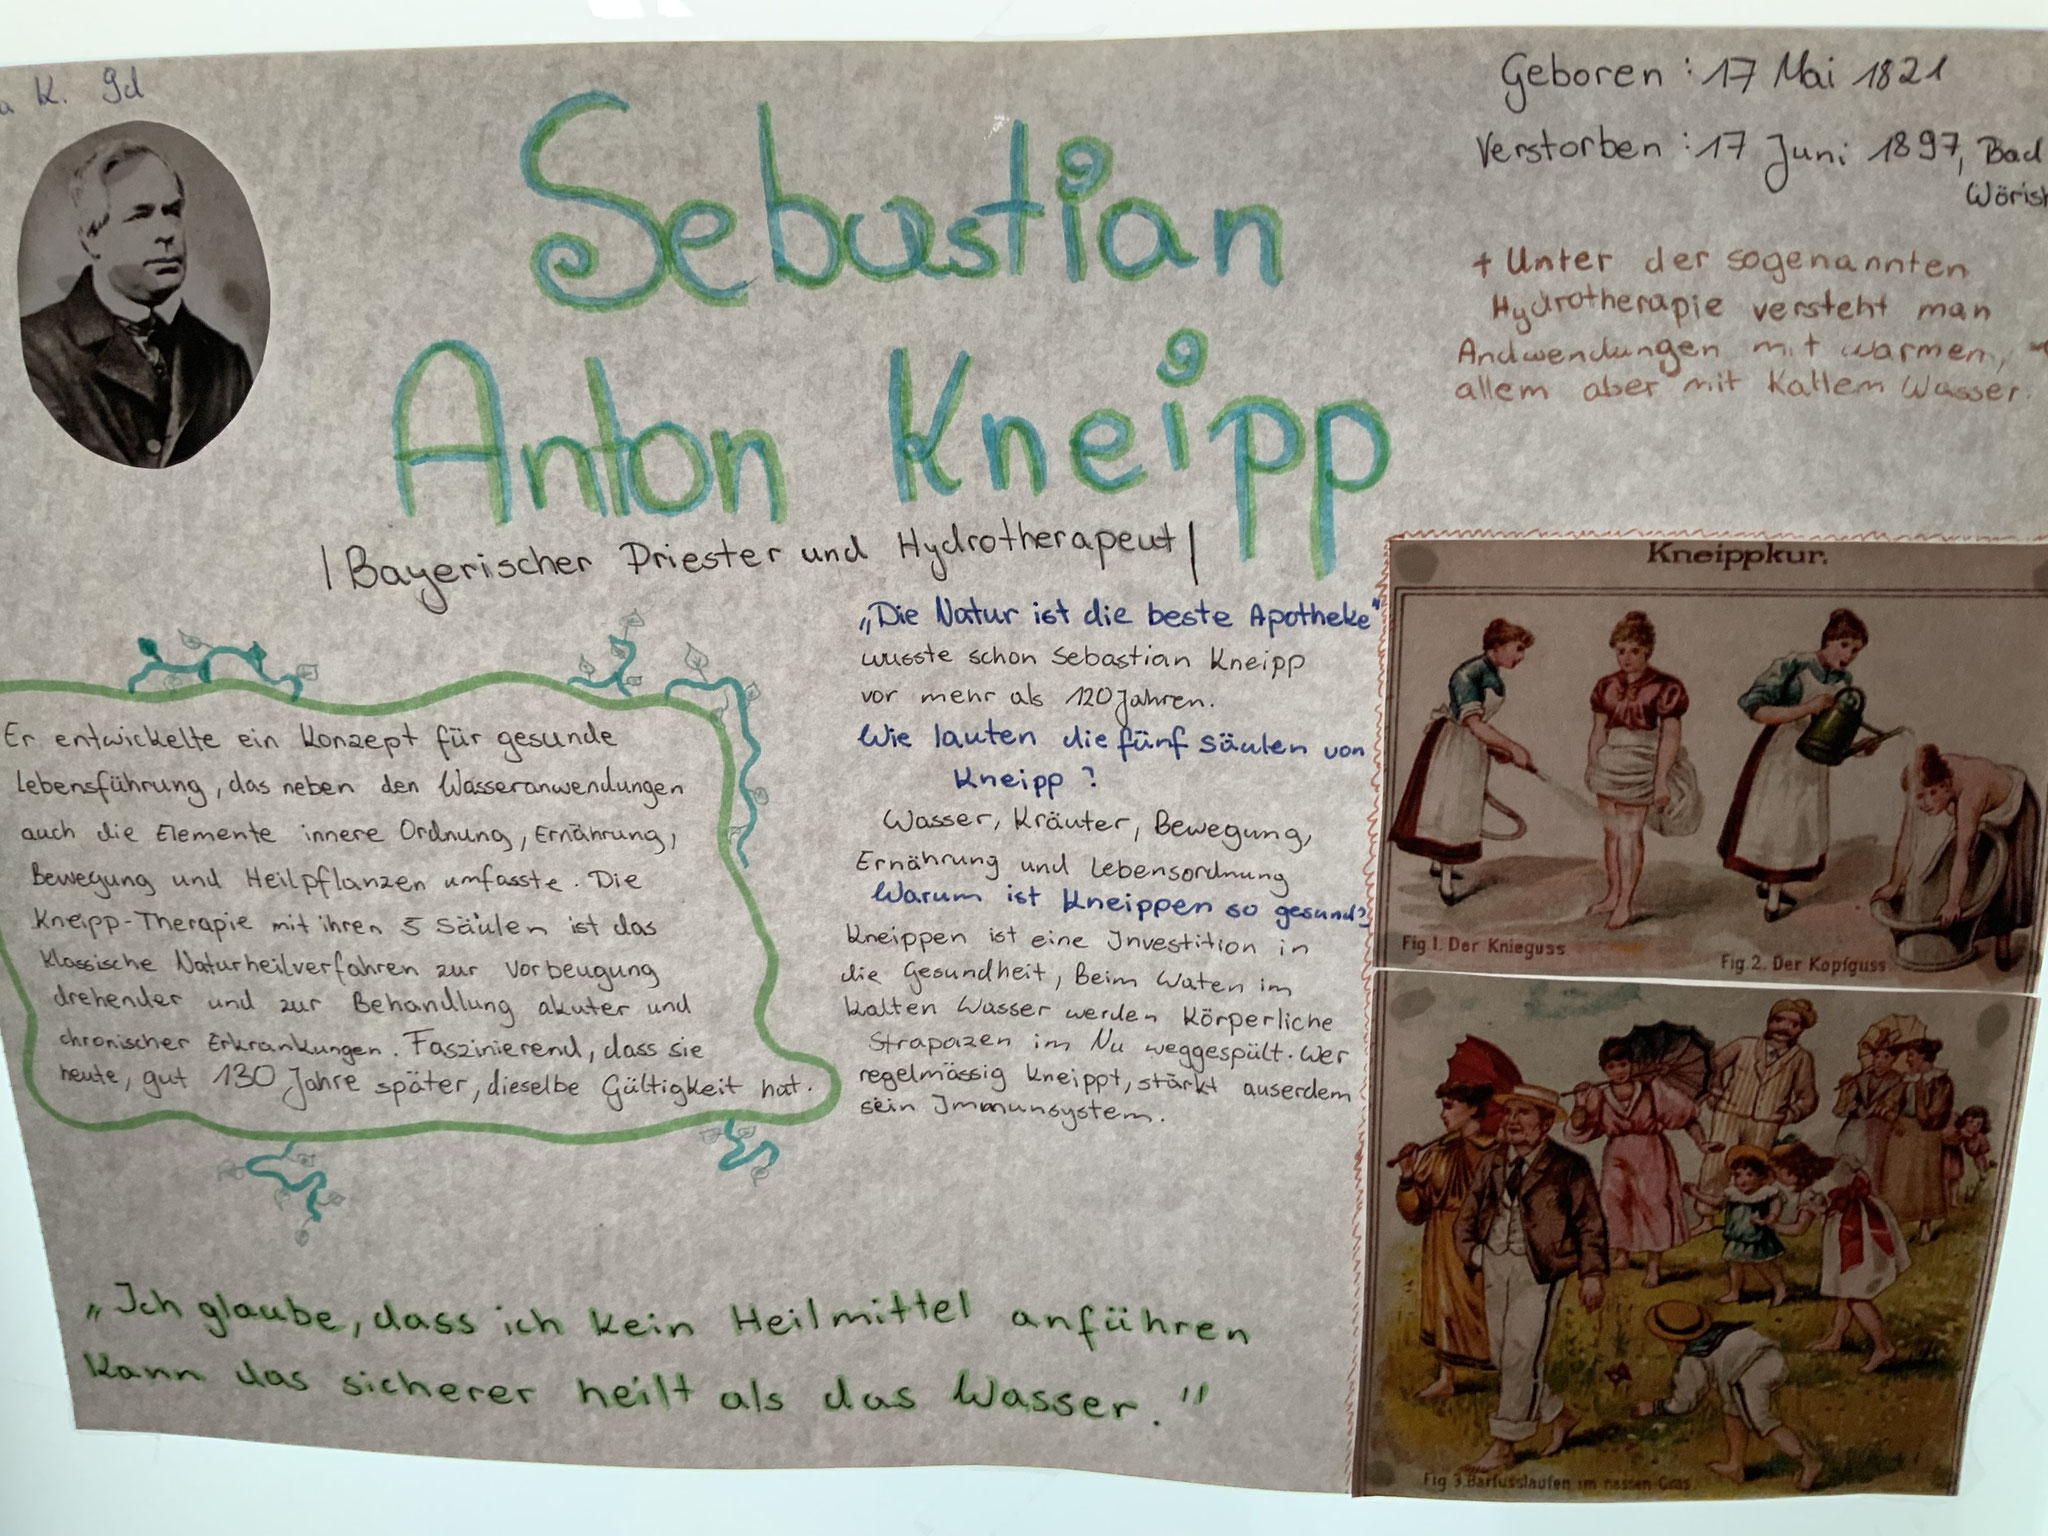 K. 9d
Sebastian
Anton Kneipp
|Bayerischer Priester und Hydrotherapeut|
Geboren : 17 Mai 1821
Verstorben : 17 Juni 1897, Bad
+ Unter der sogenannten
Hydrotherapie versteht man
Andwendungen mit warmen,
allem aber mit kaltem Wasser.
Er entwickelte ein Konzept für gesunde
Lebensführung, das neben den Wasseranwendungen
auch die Elemente innere Ordnung, Ernährung,
Bewegung und Heilpflanzen umfasste. Die
Kneipp-Therapie mit ihren 5 Säulen ist das
klassische Naturheilverfahren zur Vorbeugung
drehender und zur Behandlung akuter und
chronischer Erkrankungen. Faszinierend, dass sie
heute, gut 130 Jahre später, dieselbe Gültigkeit hat.
„Die Natur ist die beste Apotheke"
wusste schon Sebastian Kneipp
vor mehr als 120 Jahren.
Wie lauten die fünf Säulen von
Kneipp ?
Wasser, Kräuter, Bewegung,
Ernährung und Lebensordnung
Warum ist Kneippen so gesund?
Kneippen ist eine Investition in
die Gesundheit, Beim Waten im
kalten Wasser werden Körperliche
Strapazen im Nu weggespült. Wer
regelmässig kneippt, stärkt auserdem
sein Immunsystem.
„Ich glaube, dass ich kein Heilmittel anführen
kann das sicherer heilt als das Wasser."
Kneippkur.
Fig 1. Der Knieguss
Fig. 2. Der Kopfguss
Fig 3. Barfusslaufen im nassen Gras.